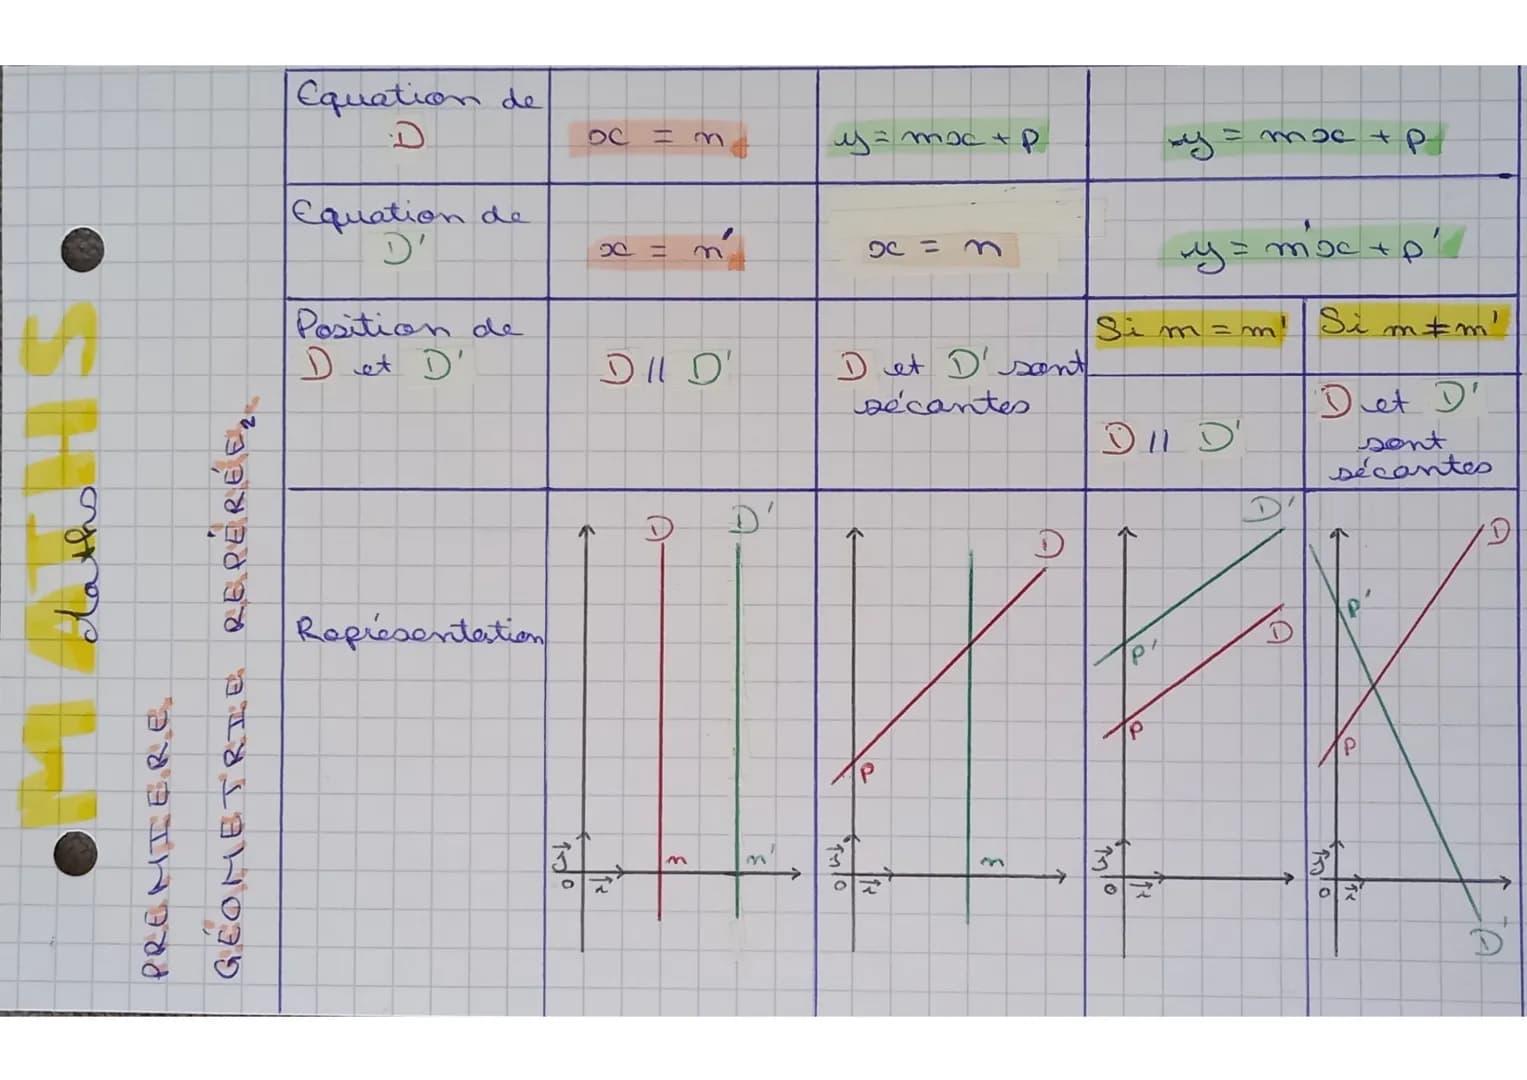 MATHS
Maths
PREMIERE
GÉOMETRIE REPÉRÉE 2
Equation de
D
x = n
y = mx + p
y = mx + p
Equation de
D'
x = n'
x = n
y = m'x + p'
Position de
D et D'
D // D'
D et D' sont
sécantes
Si m = m'
Si m ≠ m'
D // D'
D et D'
sont
sécantes
Représentation
D
D'
n
n'
j
0
i
D
P
n
j
0
i
D'
D
P'
P
j
0
i
D
P'
P
j
0
i
D'